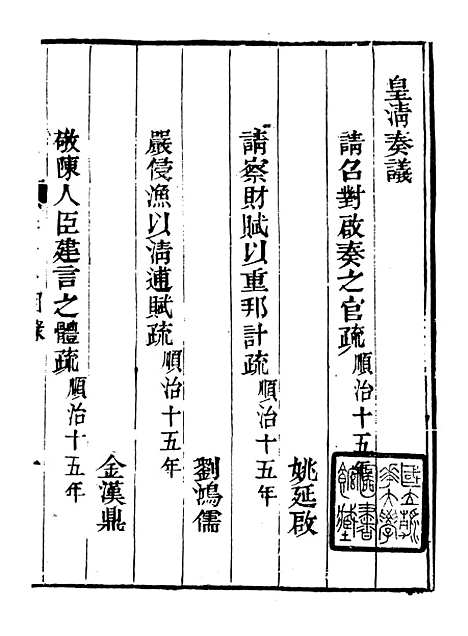 皇清奏議
請召對啟奏之官疏 順治十五年
姚延啟
請察財賦以重邦計疏 順治十五年
劉鴻儒
嚴侵漁以清逋賦疏 順治十五年
金漢鼎
敬陳人臣建言之體疏 順治十五年
目錄
一
國立清華大學圖書館藏